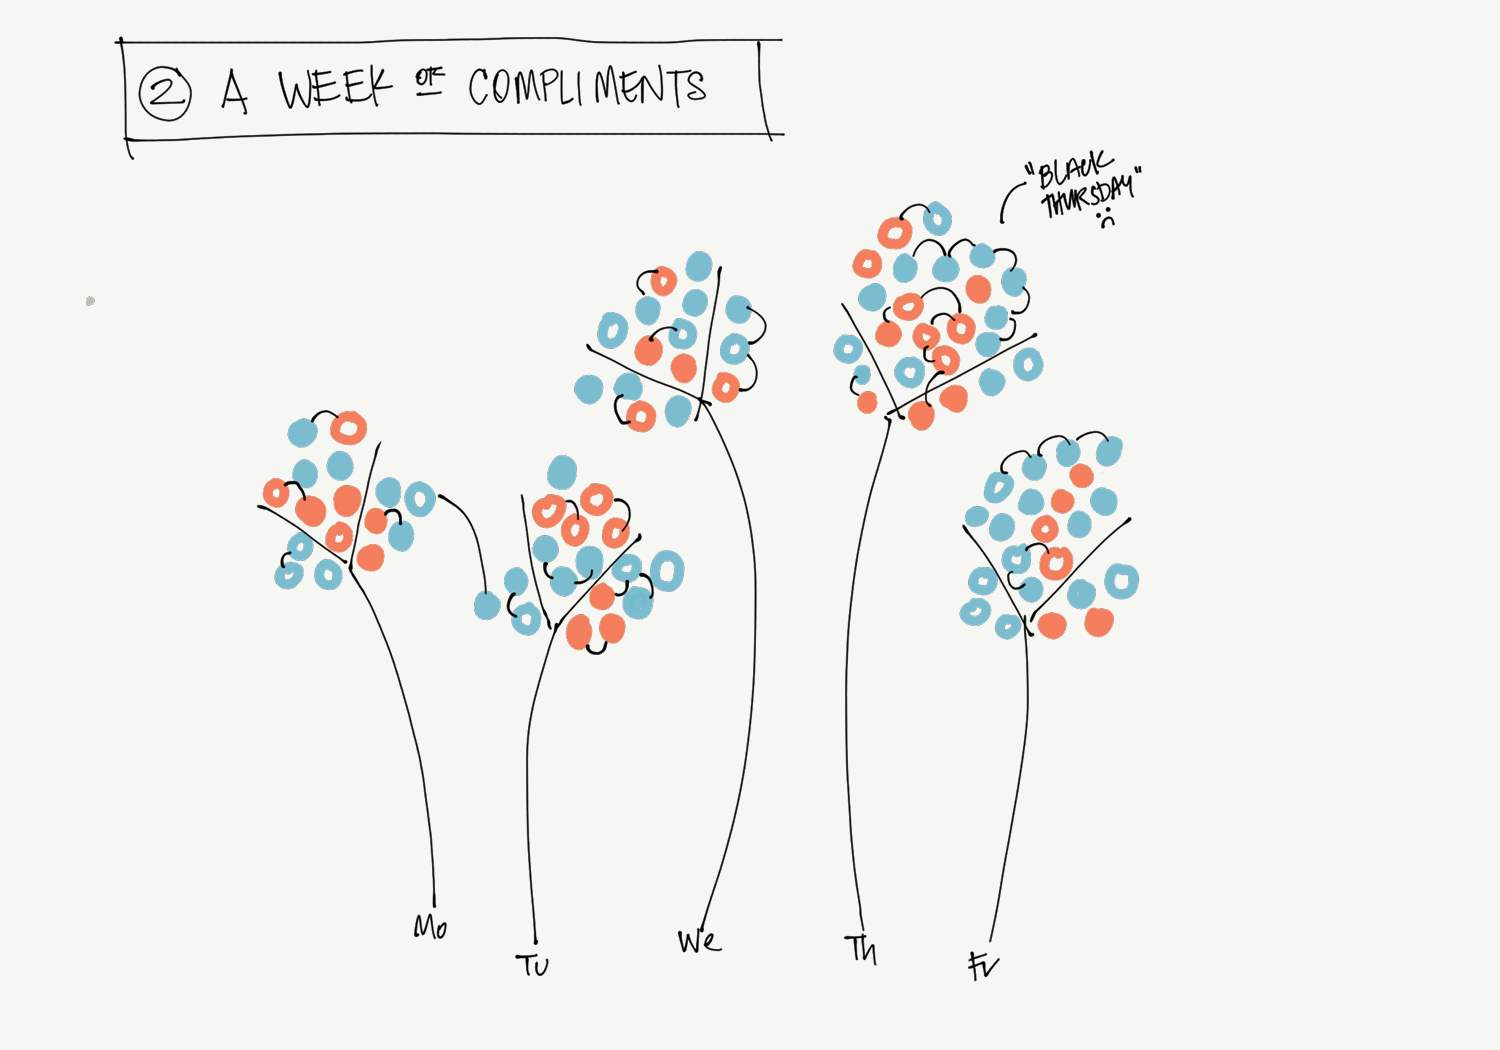 ② A WEEK OF COMPLIMENTS
"BLACK
THURSDAY"
Mo
Tu
We
Th
Fr